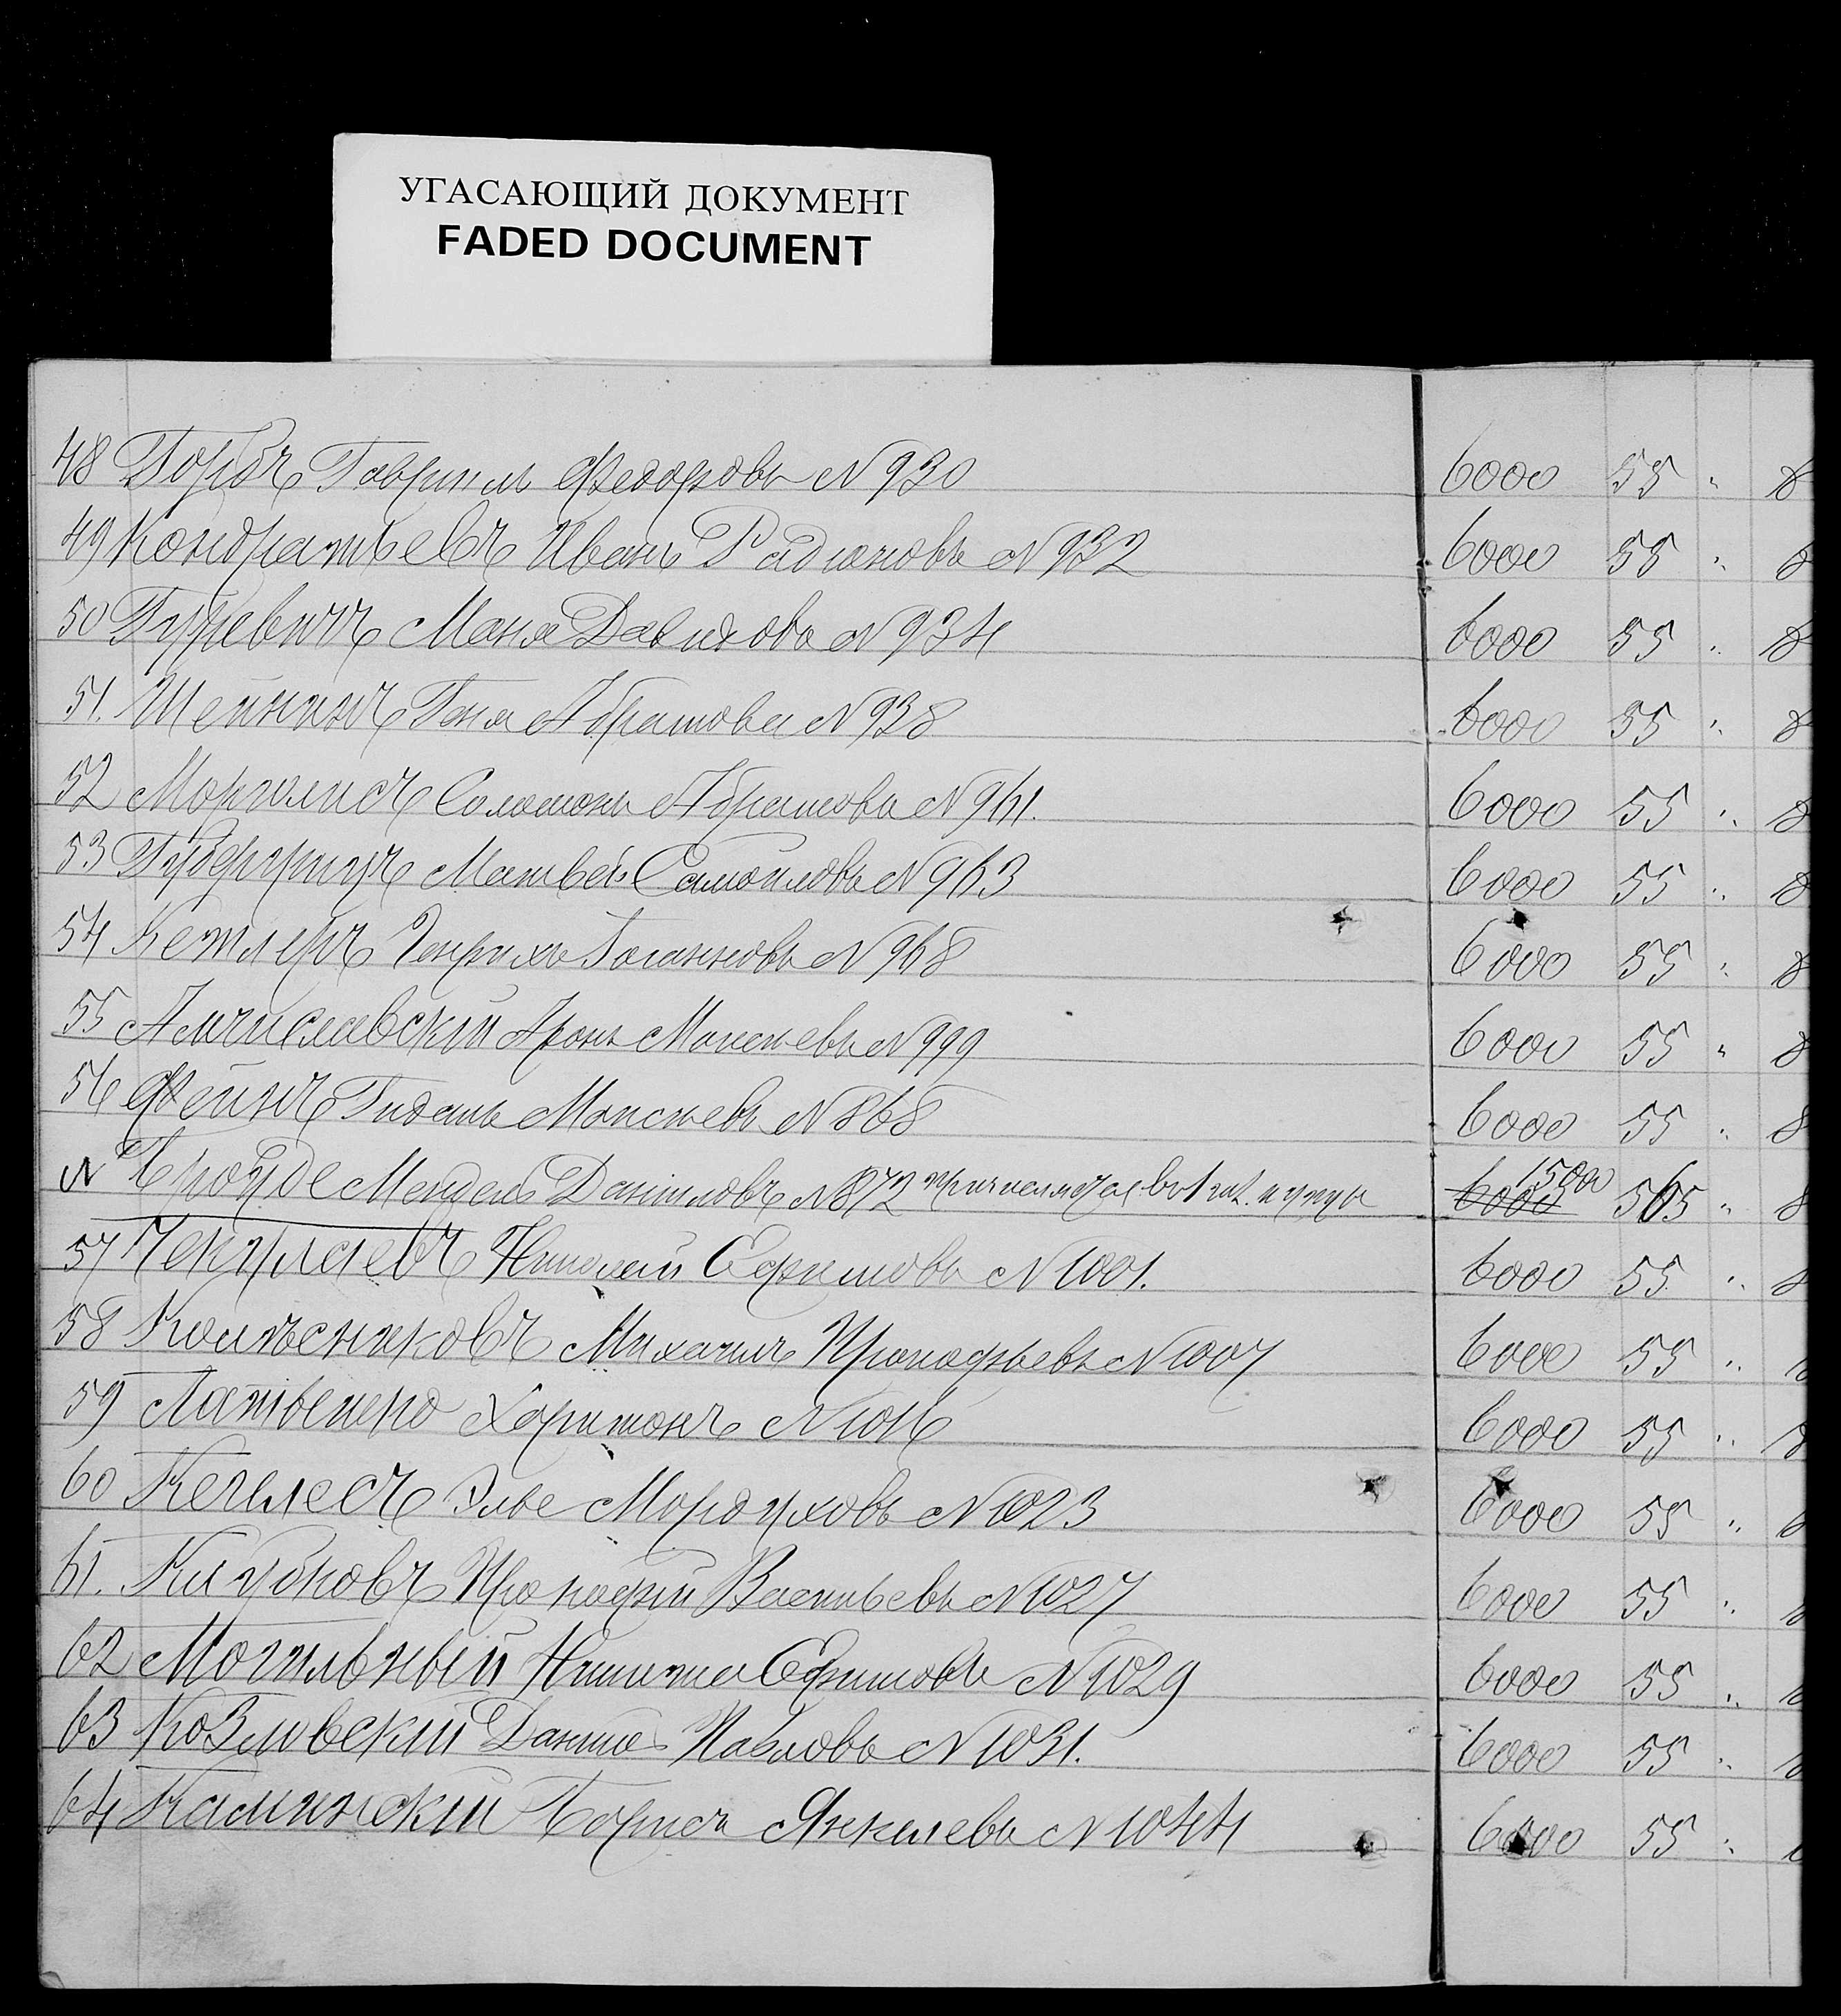 УГАСАЮЩИЙ ДОКУМЕНТ
FADED DOCUMENT
48 Гавриил Федоровъ N 930 6000 55 " 8
49 Кондратьевъ Иванъ Радіоновъ N 932 6000 55 " 8
50 Гуревичъ Маня Давидова N 934 6000 55 " 8
51. Шейнинъ Геня Абрамова N 938 6000 55 " 8
52 Марголисъ Соломонъ Абрамовъ N 961. 6000 55 " 8
53 Матвей Самойловъ N 963 6000 55 " 8
54 Кетлеръ Генрихъ Іоганновъ N 968 6000 55 " 8
55 Амчиславскій Аронъ Моисеевъ N 999 6000 55 " 8
56 Фейнъ Моисеевъ N 868 6000 55 " 8
N Броуде Мендель Даниловъ N 872 6000 1500 565 " 8
57 Чекулаевъ Николай Ефимовъ N 1001. 6000 55 " 8
58 Михаилъ Прокофьевъ N 1007 6000 55 "
59 Харитонъ N 1016 6000 55 "
60 Кегелесъ Эля Мордуховъ N 1023 6000 55 "
61. Прокофій Васильевъ N 1027 6000 55 "
62 Могильный Никита Ефимовъ N 1029 6000 55 "
63 Козловскій Данило Павловъ N 1031. 6000 55 "
64 Каминскій Борисъ Янкелевъ N 1044 6000 55 "